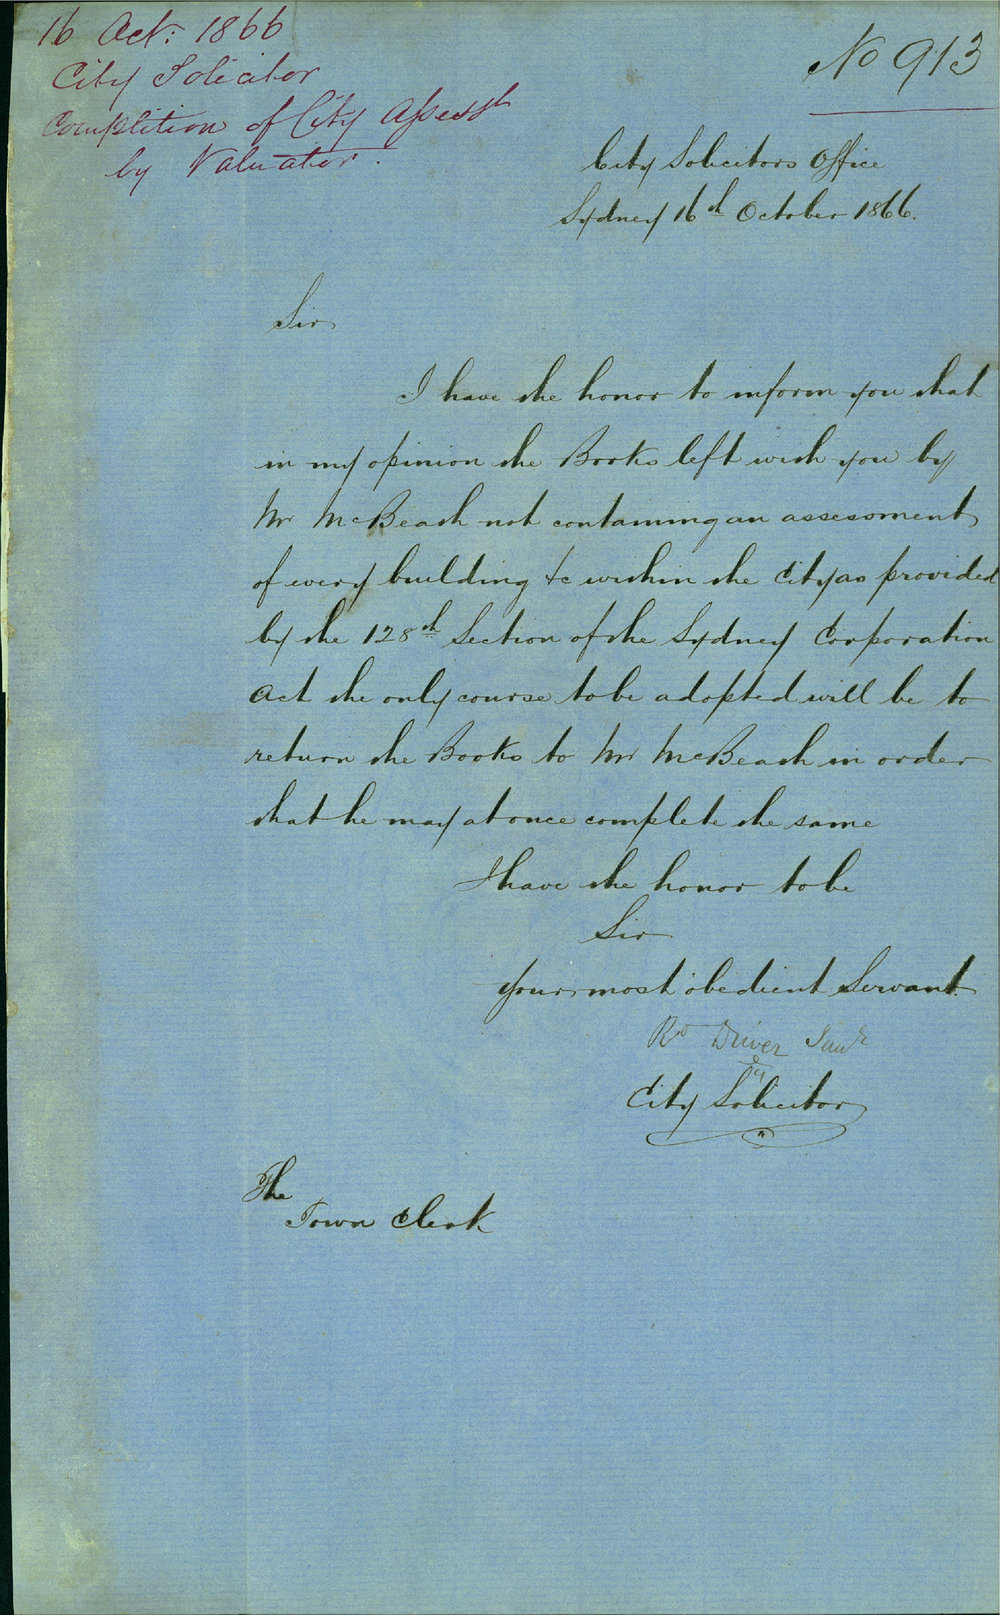 16 Oct: 1866
City Solicitor
Completion of City Assesst
by Valuator.
No 913
City Solicitors Office
Sydney 16th October 1866.
Sir
I have the honor to inform you that
in my opinion the Books left with you by
Mr McBeath not containing an assessment
of every building &c within the City as provided
by the 128th Section of the Sydney Corporation
Act the only course to be adopted will be to
return the Books to Mr McBeath in order
that he may at once complete the same
I have the honor to be
Sir
Your most obedient Servant
Rd Driver Junr
City Solicitor
The
Town Clerk